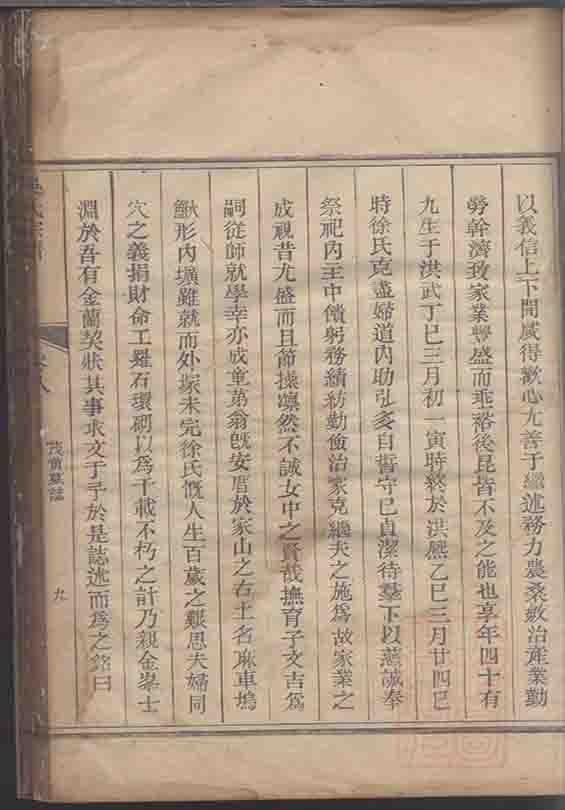 以義信上下閒咸得歡心尤善于繼述務力農桑數治產業勤
勞幹濟致家業豐盛而垂裕後昆皆不及之能也享年四十有
九生于洪武丁巳三月初一寅時終於洪熙乙巳三月廿四巳
時徐氏克盡婦道內助弘多自誓守巳貞潔待羣下以慈誠奉
祭祀內主中饋躬務績紡勤儉治家克繼夫之施爲故家業之
成視昔尤盛而且節操凜然不誠女中之賢哉撫育子文吉爲
嗣從師就學幸亦成童苐翁旣安厝於家山之右土名麻車塢
形內壙雖就而外塚未完徐氏慨人生百歲之艱思夫婦同
穴之義捐財命工羅石環砌以爲千載不朽之計乃親金峯士
淵於吾有金蘭契狀其事求文于予於是誌述而爲之銘曰
茂賞墓誌
九